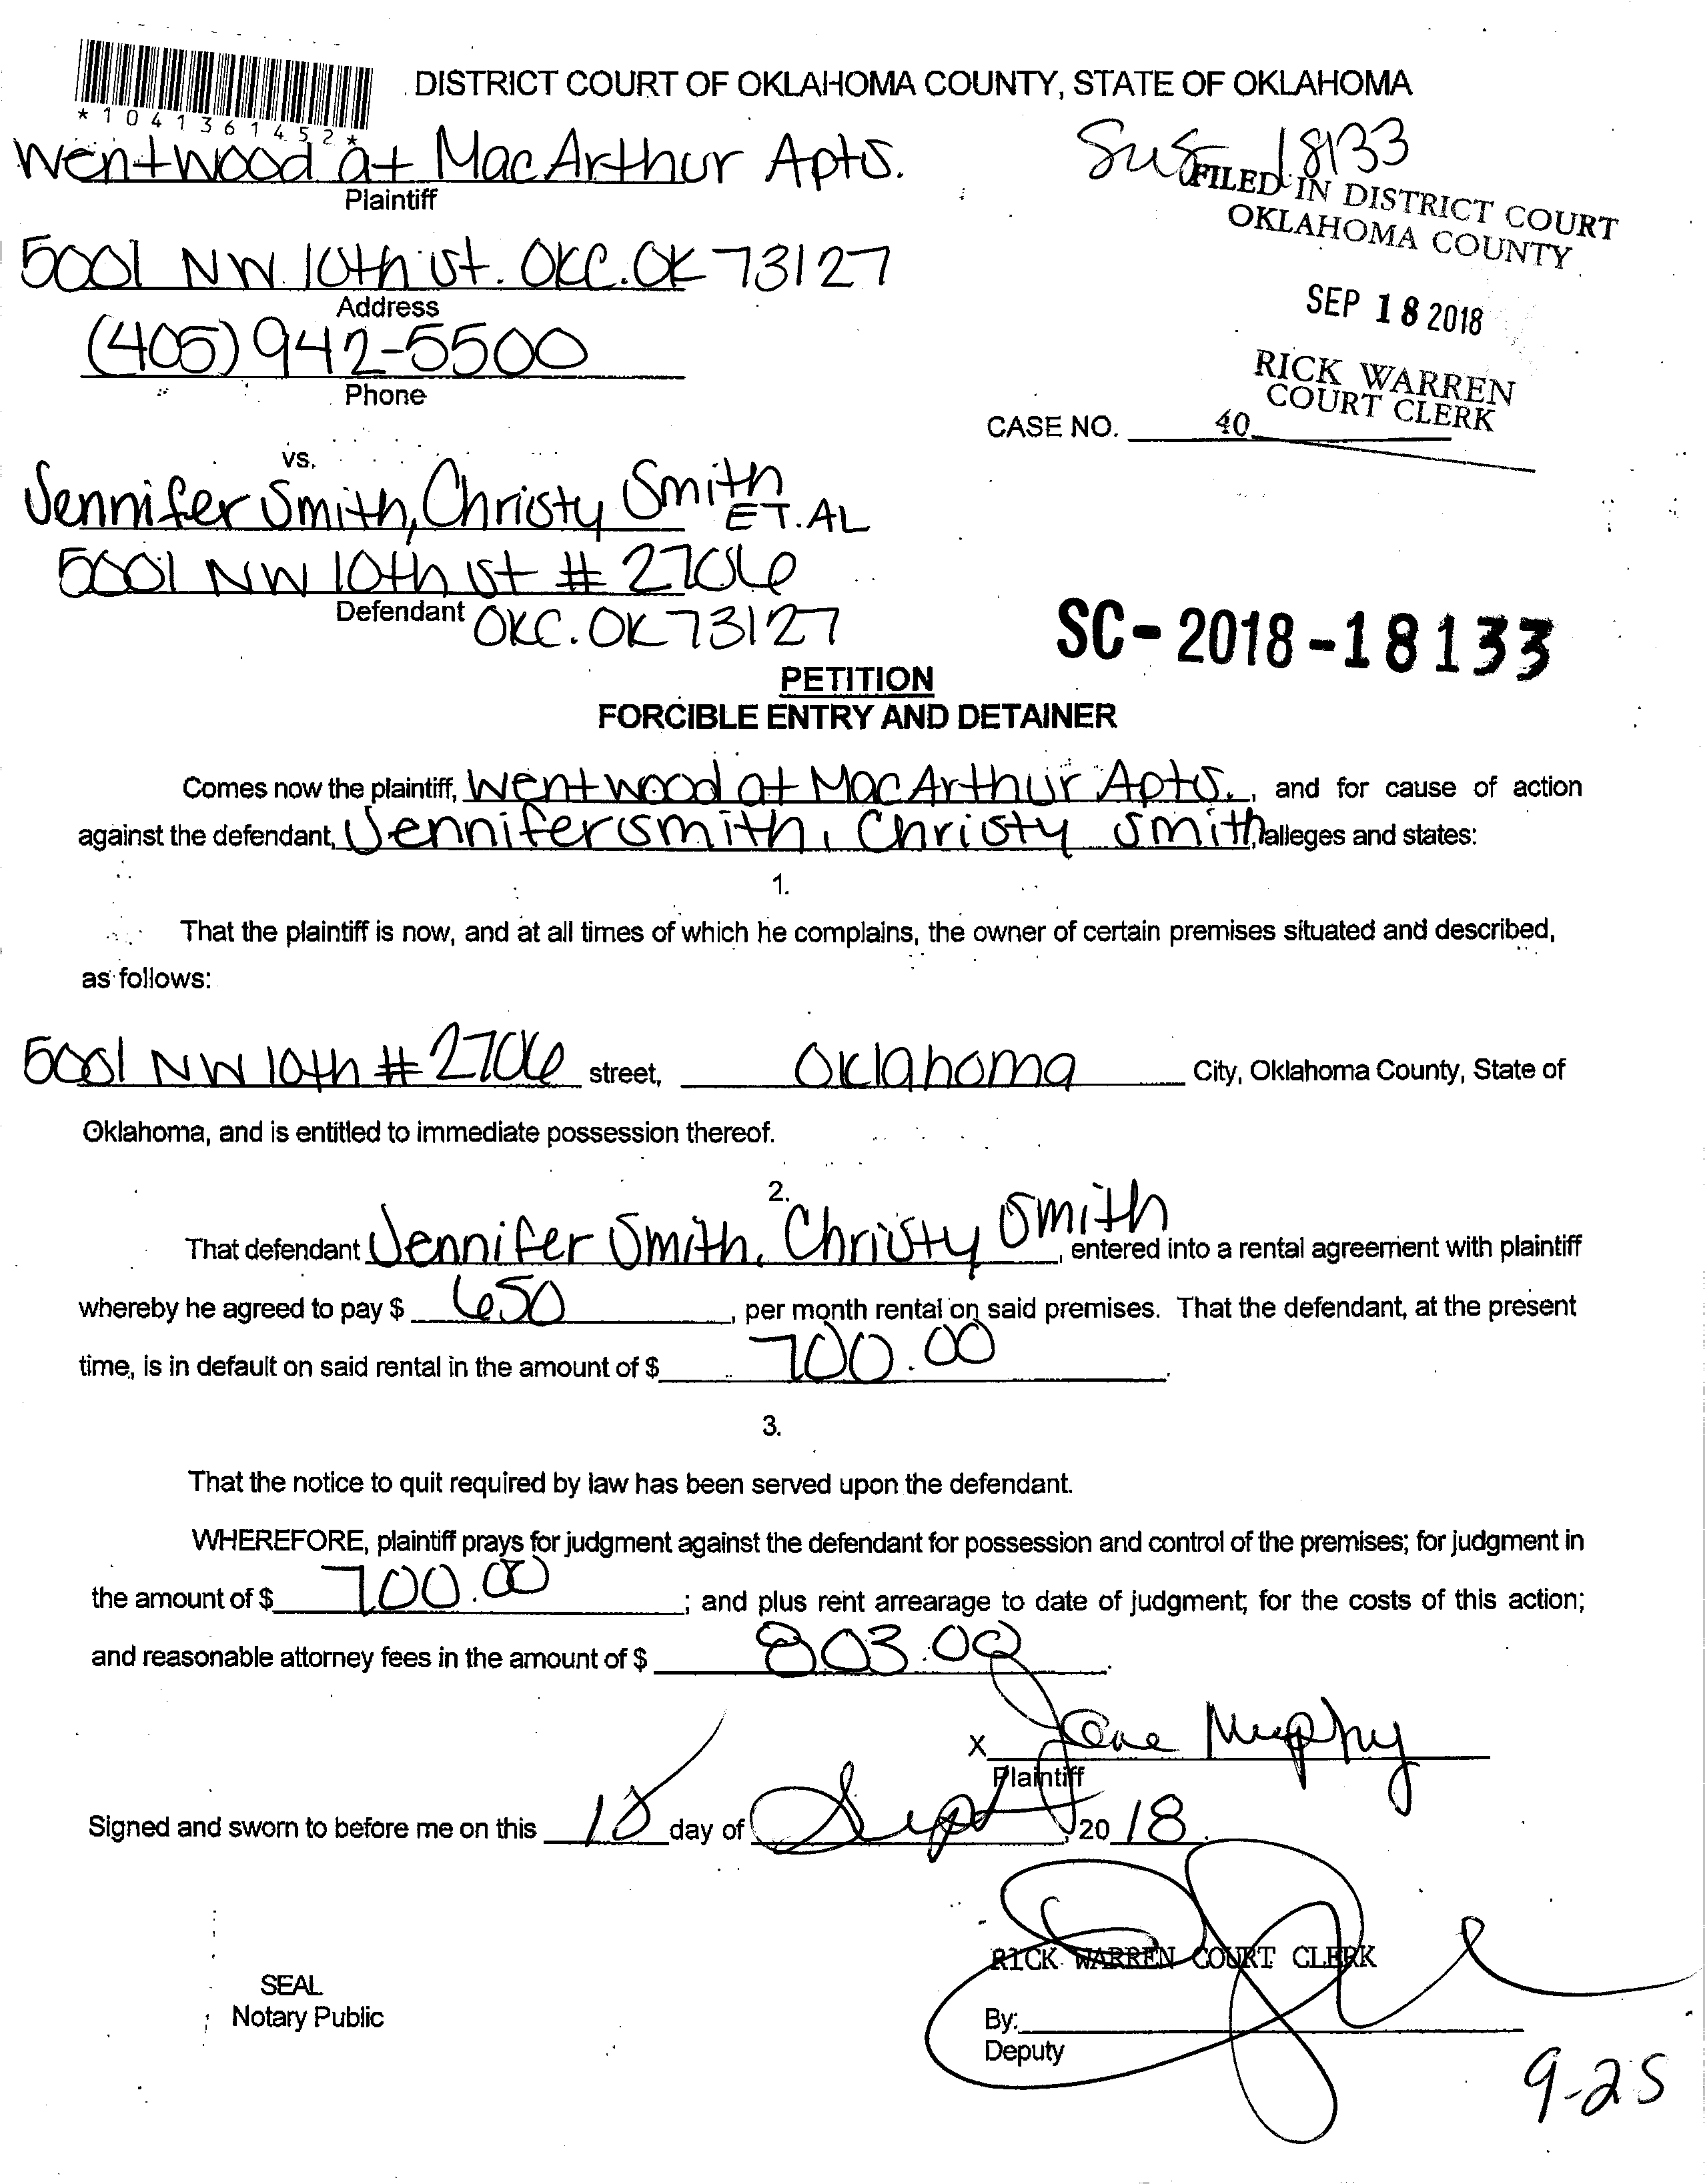 DISTRICT COURT OF OKLAHOMA COUNTY, STATE OF OKLAHOMA
*1041361452*
Wentwood at MacArthur Apts.
Plaintiff
18133
FILED IN DISTRICT COURT
OKLAHOMA COUNTY
5001 NW. 10th st. OKC. OK 73127
Address
SEP 18 2018
(405) 942-5500
Phone
RICK WARREN
COURT CLERK
CASE NO. 40
vs.
Jennifer Smith, Christy Smith
ET. AL
5001 NW 10th st # 2706
Defendant OKC. OK 73127
SC-2018-18133
PETITION
FORCIBLE ENTRY AND DETAINER
Comes now the plaintiff, Wentwood at MacArthur Apts., and for cause of action
against the defendant, Jennifer Smith, Christy Smith, alleges and states:
1.
That the plaintiff is now, and at all times of which he complains, the owner of certain premises situated and described,
as follows:
5001 NW 10th # 2706 street, Oklahoma City, Oklahoma County, State of
Oklahoma, and is entitled to immediate possession thereof.
2.
That defendant Jennifer Smith, Christy Smith, entered into a rental agreement with plaintiff
whereby he agreed to pay $ 650, per month rental on said premises. That the defendant, at the present
time, is in default on said rental in the amount of $ 700.00.
3.
That the notice to quit required by law has been served upon the defendant.
WHEREFORE, plaintiff prays for judgment against the defendant for possession and control of the premises; for judgment in
the amount of $ 700.00; and plus rent arrearage to date of judgment; for the costs of this action;
and reasonable attorney fees in the amount of $ 803.00.
X Jane Murphy
Plaintiff
Signed and sworn to before me on this 18 day of Sept, 20 18.
RICK WARREN COURT CLERK
SEAL
Notary Public
By:
Deputy
9-25